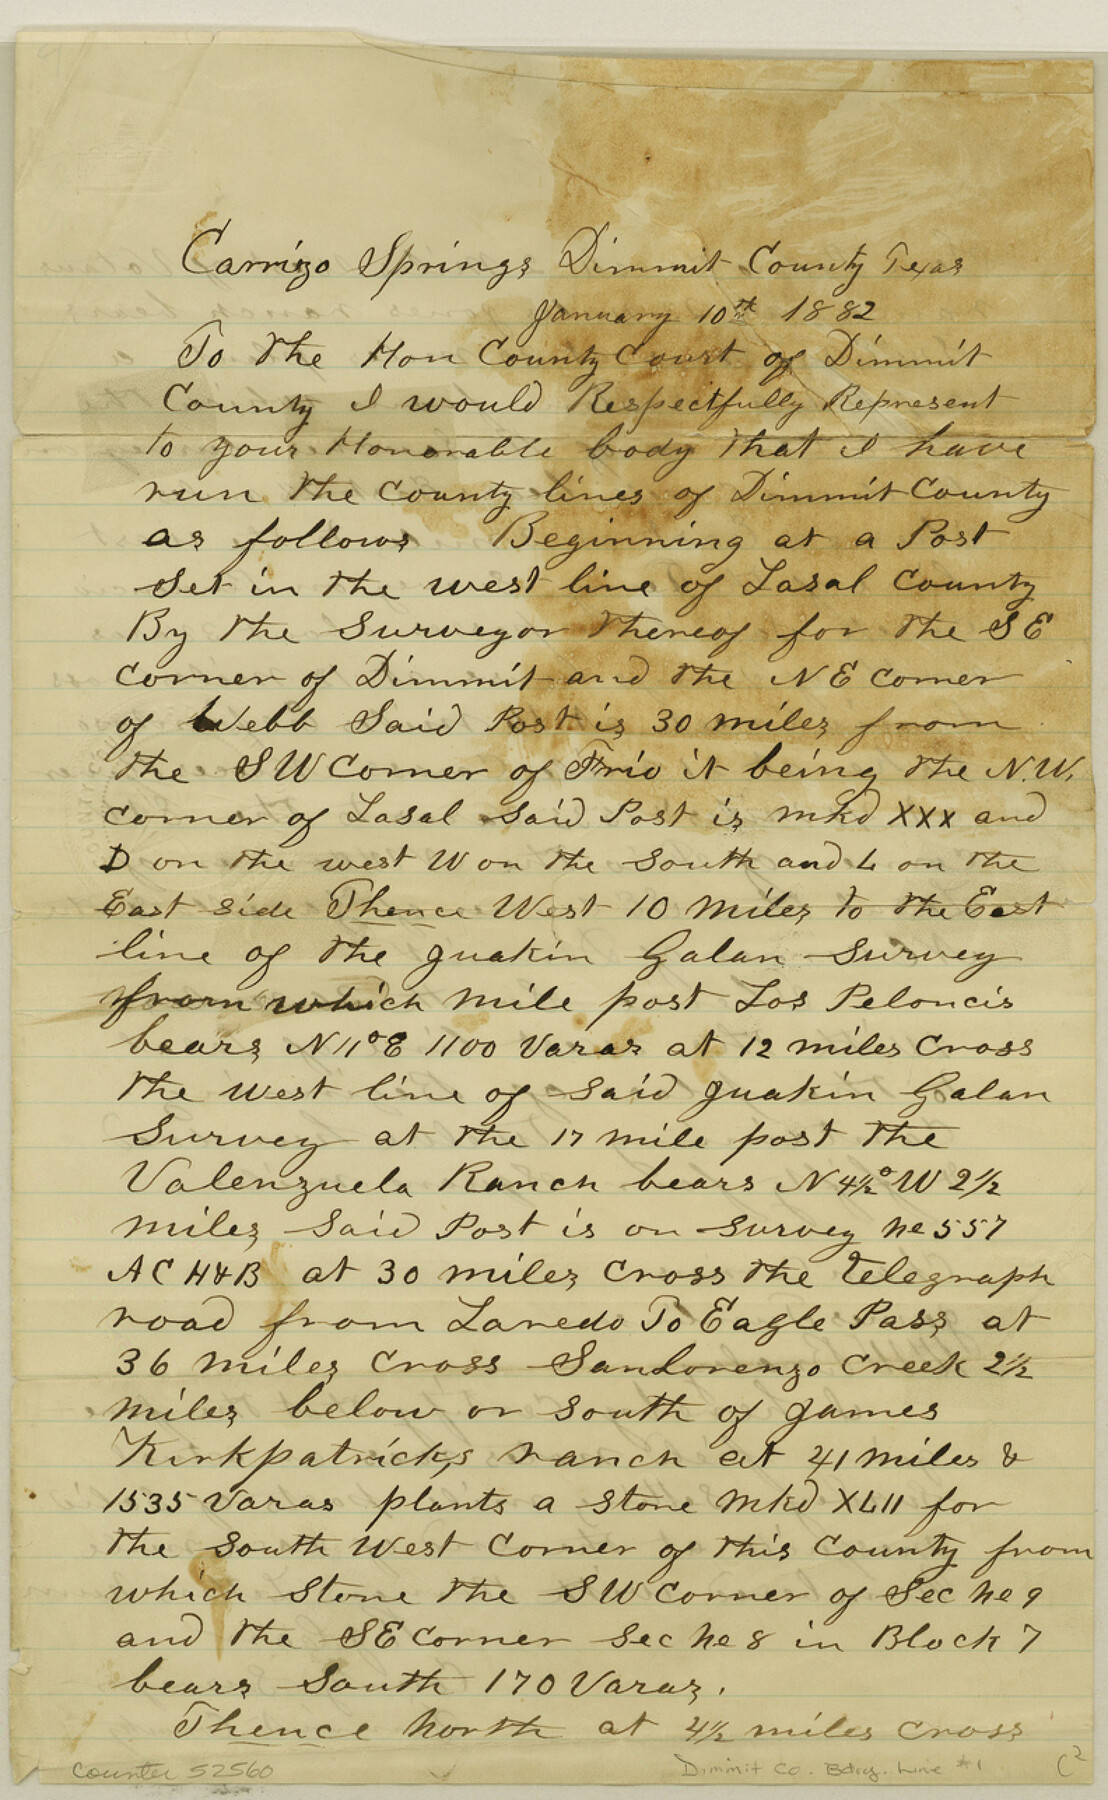 Carrizo Springs Dimmit County Texas
January 10th 1882
To the Hon County Court of Dimmit
County I would Respectfully Represent
to your Honorable body that I have
run the county lines of Dimmit County
as follows Beginning at a Post
Set in the west line of Lasal County
By the Surveyor thereof for the SE
Corner of Dimmit and the NE Corner
of Webb Said Post is 30 miles from
the SW Corner of Frio it being the N.W.
corner of Lasal Said Post is mkd XXX and
D on the west W on the South and L on the
East side Thence West 10 miles to the East
line of the Juakin Galan Survey
from which mile post Los Peloncis
bears N11°E 1100 Varas at 12 miles Cross
the west line of Said Juakin Galan
Survey at the 17 mile post the
Valenzuela Ranch bears N4½°W 2½
miles Said Post is on Survey No 557
ACH&B at 30 miles Cross the Telegraph
road from Laredo To Eagle Pass at
36 miles Cross SanLorenzo Creek 2½
miles below or South of James
Kirkpatricks ranch at 41 miles &
1535 Varas plants a stone mkd XLII for
the South West Corner of this County from
which Stone the SW Corner of Sec No 9
and the SE Corner Sec No 8 in Block 7
bears South 170 Varas.
Thence North at 4½ miles Cross
Counter 52560
Dimmit Co. Bdry. Line #1
C2